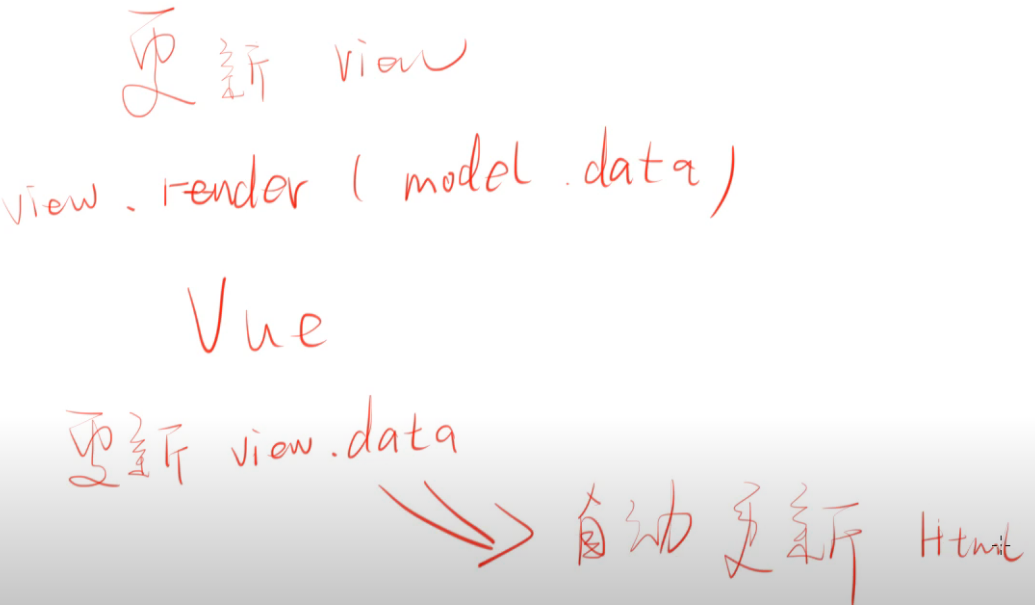 更新 view
view.render(model.data)
Vue
更新 view.data
=> 自动更新 Html